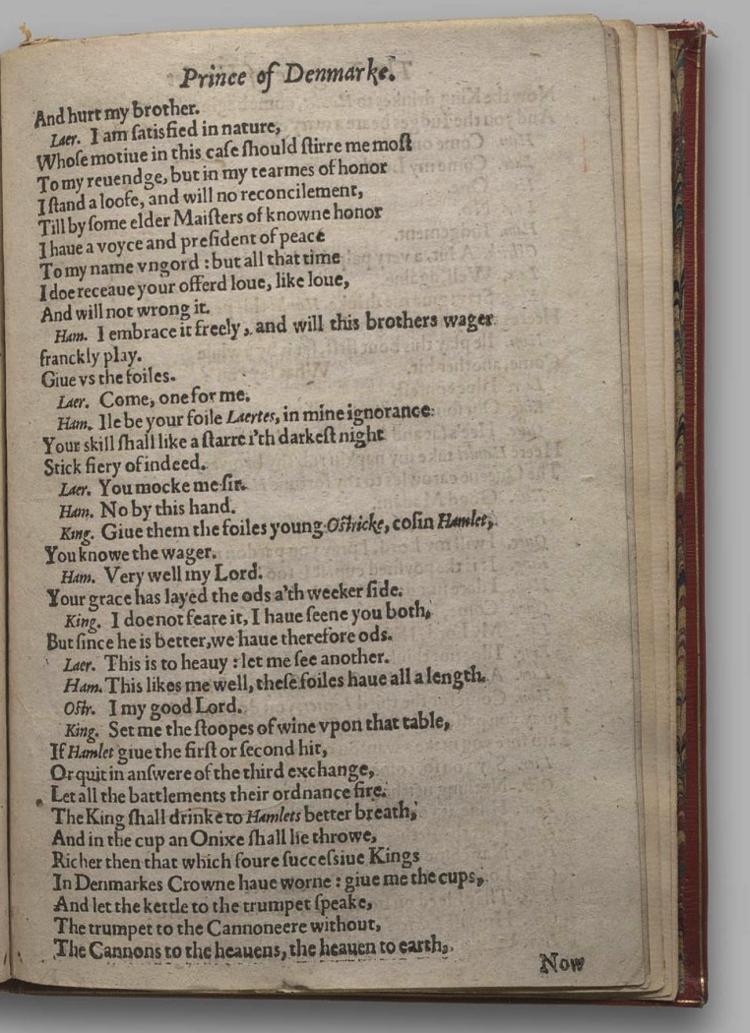 Prince of Denmarke.
And hurt my brother.
Laer. I am ſatisfied in nature,
Whoſe motiue in this caſe ſhould ſtirre me moſt
To my reuendge, but in my tearmes of honor
I ſtand a loofe, and will no reconcilement,
Till by ſome elder Maiſters of knowne honor
I haue a voyce and preſident of peace
To my name vngord : but all that time
I doe receaue your offerd loue, like loue,
And will not wrong it.
Ham. I embrace it freely, and will this brothers wager
franckly play.
Giue vs the foiles.
Laer. Come, one for me.
Ham. Ile be your foile Laertes, in mine ignorance
Your skill ſhall like a ſtarre i'th darkeſt night
Stick fiery of indeed.
Laer. You mocke me ſir.
Ham. No by this hand.
King. Giue them the foiles young Oſtricke, coſin Hamlet,
You knowe the wager.
Ham. Very well my Lord.
Your grace has layed the ods a'th weeker ſide.
King. I doe not feare it, I haue ſeene you both,
But ſince he is better, we haue therefore ods.
Laer. This is to heauy : let me ſee another.
Ham. This likes me well, theſe foiles haue all a length.
Oſtr. I my good Lord.
King. Set me the ſtoopes of wine vpon that table,
If Hamlet giue the firſt or ſecond hit,
Or quit in anſwere of the third exchange,
Let all the battlements their ordnance fire.
The King ſhall drinke to Hamlets better breath,
And in the cup an Onixe ſhall lie throwe,
Richer then that which foure ſucceſsiue Kings
In Denmarkes Crowne haue worne : giue me the cups,
And let the kettle to the trumpet ſpeake,
The trumpet to the Cannoneere without,
The Cannons to the heauens, the heauen to earth,
Now